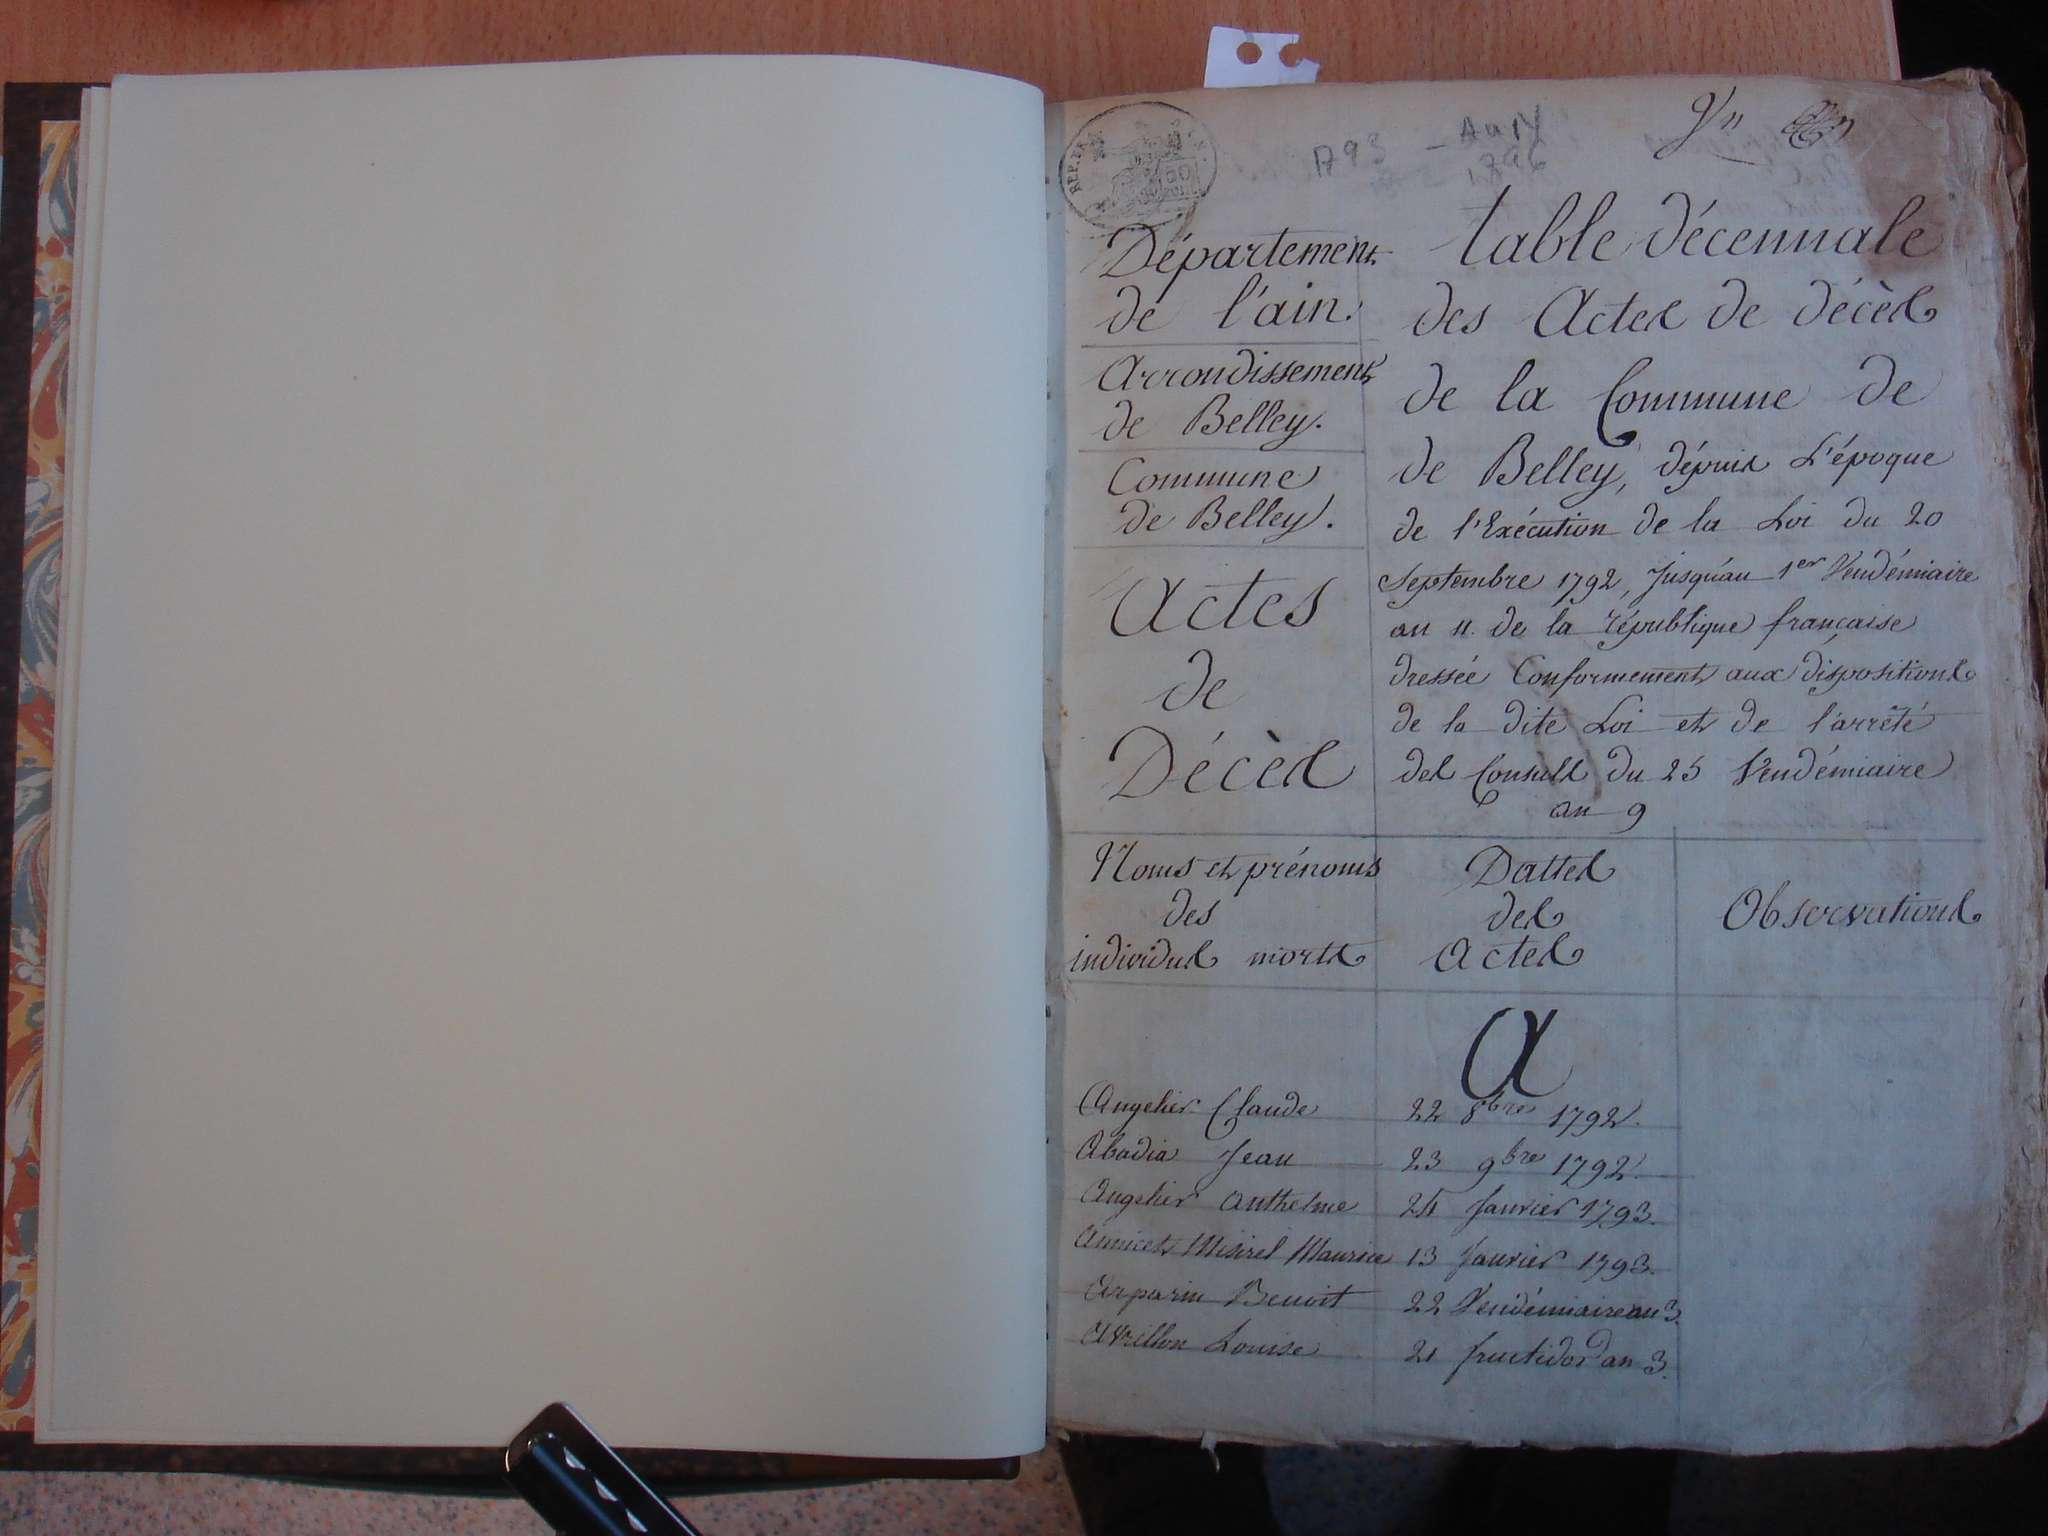 REP. FRA
50
1793 - An 14
Département
de l'ain.
Arrondissement
de Belley.
Commune
de Belley.
Actes
de
Décès
table décennale
des Actes de décès
de la Commune de
de Belley, dépuis L'époque
de l'Exécution de la Loi du 20
Septembre 1792, Jusqu'au 1er Vendémiaire
an 11. de la république française
dressée Conformement aux dispositions
de la dite Loi et de l'arrêté
des Consuls du 25 Vendémiaire
an 9
Noms et prénoms
des
individus morts
Dattes
des
Actes
Observations
A
Angelier Claude 22 8bre 1792.
Abadia Jean 23 9bre 1792.
Angelier Anthelme 24 Janvier 1793.
Maurice 13 Janvier 1793.
Arparin Benoit 22 Vendémiaire an 3.
Avrillon Louise 21 fructidor an 3.